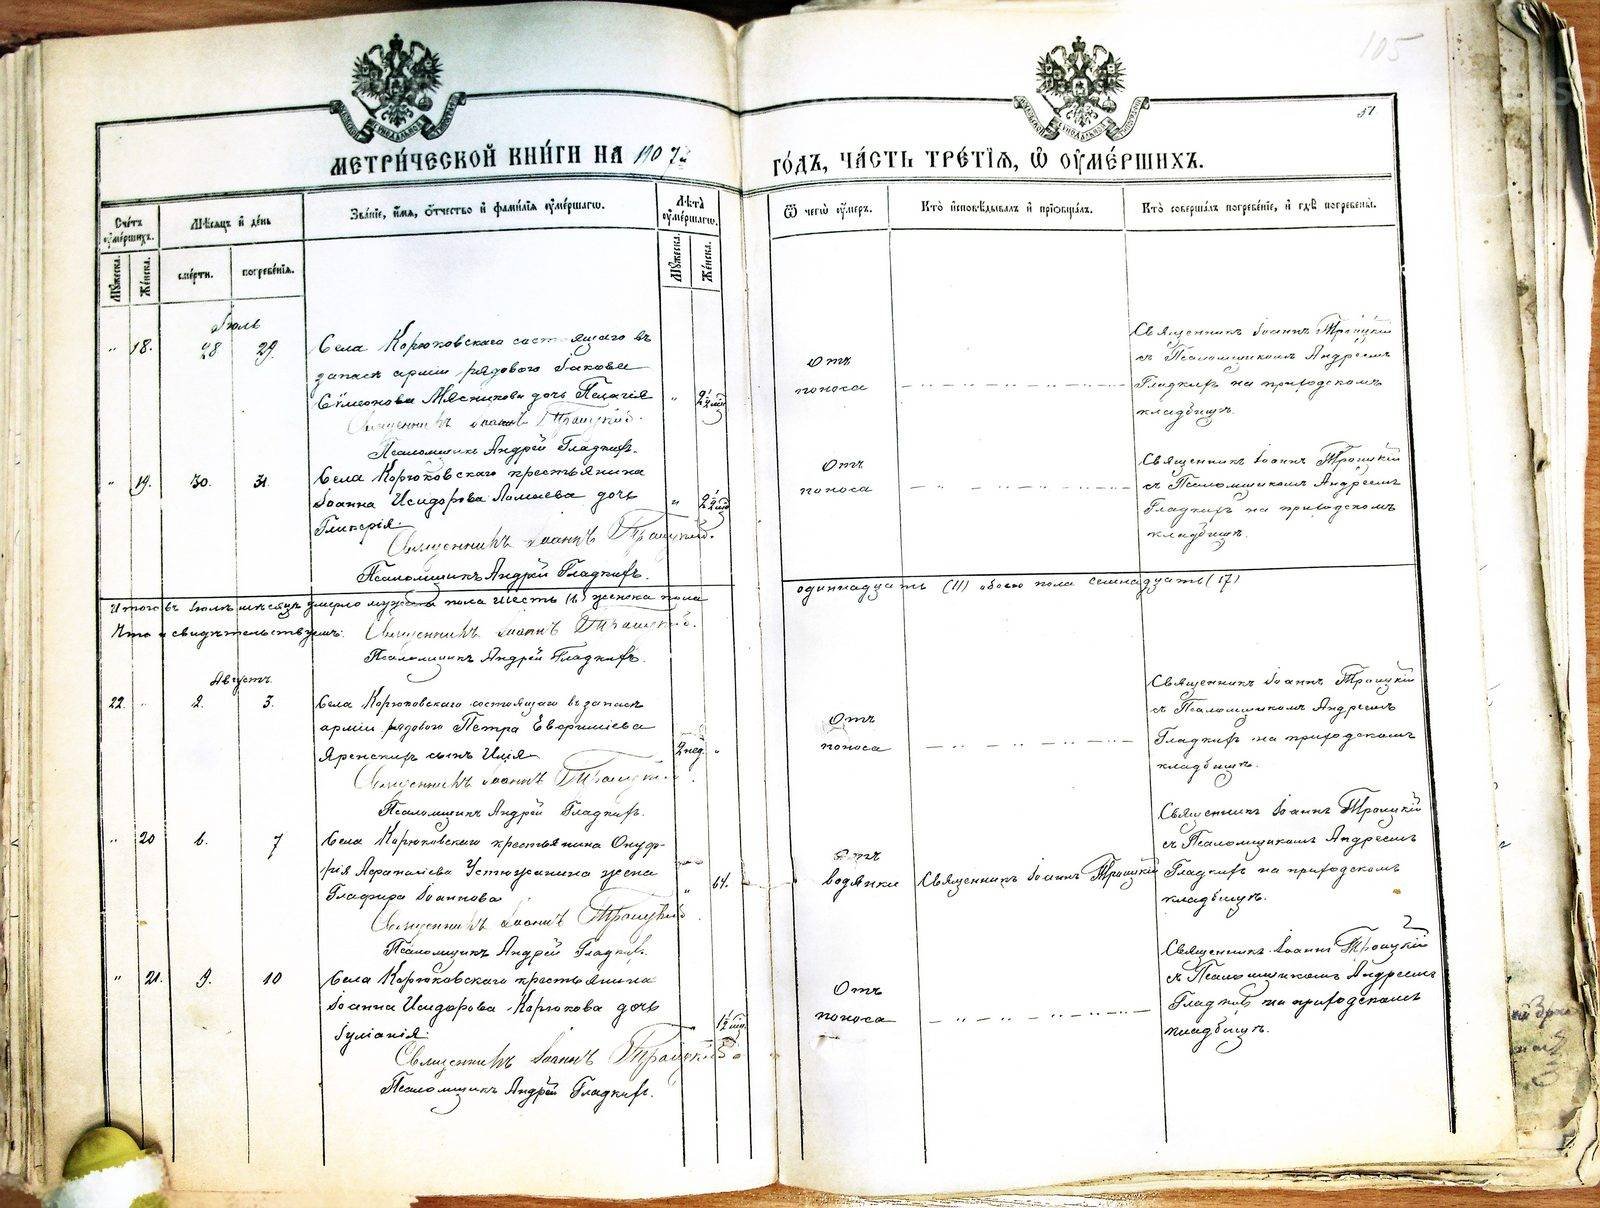 105
57
МЕТРИЧЕСКОЙ КНИГИ НА 1907
ГОДЪ, ЧАСТЬ ТРЕТІЯ, Ѿ ОУМЕРШИХЪ.
Счетъ оумершихъ.
Мѣсяцъ и день
Званіе, имя, отчество и фамилія оумершагω.
Лѣта оумершагω.
Ѿ чегω оумеръ.
Кто исповѣдывалъ и пріобщалъ.
Кто совершалъ погребеніе, и гдѣ погребены.
Мужеска.
Женска.
смерти.
погребенія.
Мужеска.
Женска.
Іюль
" 18. 28 29.
Села Корюковскаго состоящаго въ
запасѣ арміи рядового Іакова
Сѵмеонова Мясникова дочь Пелагія
Священникъ Іоаннъ Троицкій.
Псаломщикъ Андрей Гладкихъ.
" 2½ мѣс
Отъ
поноса
Священникъ Іоаннъ Троицкій
съ Псаломщикомъ Андреемъ
Гладкихъ на приходскомъ
кладбищѣ.
" 19. 30. 31.
Села Корюковскаго крестьянина
Іоанна Исидорова дочь
Гликерія.
Священникъ Іоаннъ Троицкій.
Псаломщикъ Андрей Гладкихъ.
" 2½ мѣс
Отъ
поноса
Священникъ Іоаннъ Троицкій
съ Псаломщикомъ Андреемъ
Гладкихъ на приходскомъ
кладбищѣ.
Итого въ Іюлѣ мѣсяцѣ умерло мужеска пола шесть (6) женска пола
одиннадцать (11) обоего пола семнадцать (17)
Что и свидѣтельствуемъ: Священникъ Іоаннъ Троицкій.
Псаломщикъ Андрей Гладкихъ.
Августъ
22 " 2. 3.
Села Корюковскаго состоящаго въ запасѣ
арміи рядового Петра Евфиміева
Яренскихъ сынъ Илія
Священникъ Іоаннъ Троицкій.
Псаломщикъ Андрей Гладкихъ.
2 нед. "
Отъ
поноса
Священникъ Іоаннъ Троицкій
съ Псаломщикомъ Андреемъ
Гладкихъ на приходскомъ
кладбищѣ.
" 20 6. 7
Села Корюковскаго крестьянина Онуф-
рія Аѳанасіева Устюжанина жена
Глафира Іоаннова
Священникъ Іоаннъ Троицкій
Псаломщикъ Андрей Гладкихъ.
" 64.
Отъ
водянки
Священникъ Іоаннъ Троицкій
Священникъ Іоаннъ Троицкій
съ Псаломщикомъ Андреемъ
Гладкихъ на приходскомъ
кладбищѣ.
" 21. 9. 10
Села Корюковскаго крестьянина
Іоанна Исидорова Корюкова дочь
Іуліанія.
Священникъ Іоаннъ Троицкій
Псаломщикъ Андрей Гладкихъ.
1½ мѣс.
Отъ
поноса
Священникъ Іоаннъ Троицкій
съ Псаломщикомъ Андреемъ
Гладкихъ на приходскомъ
кладбищѣ.